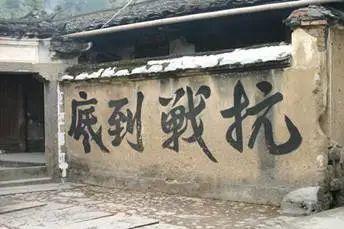 抗戰到底